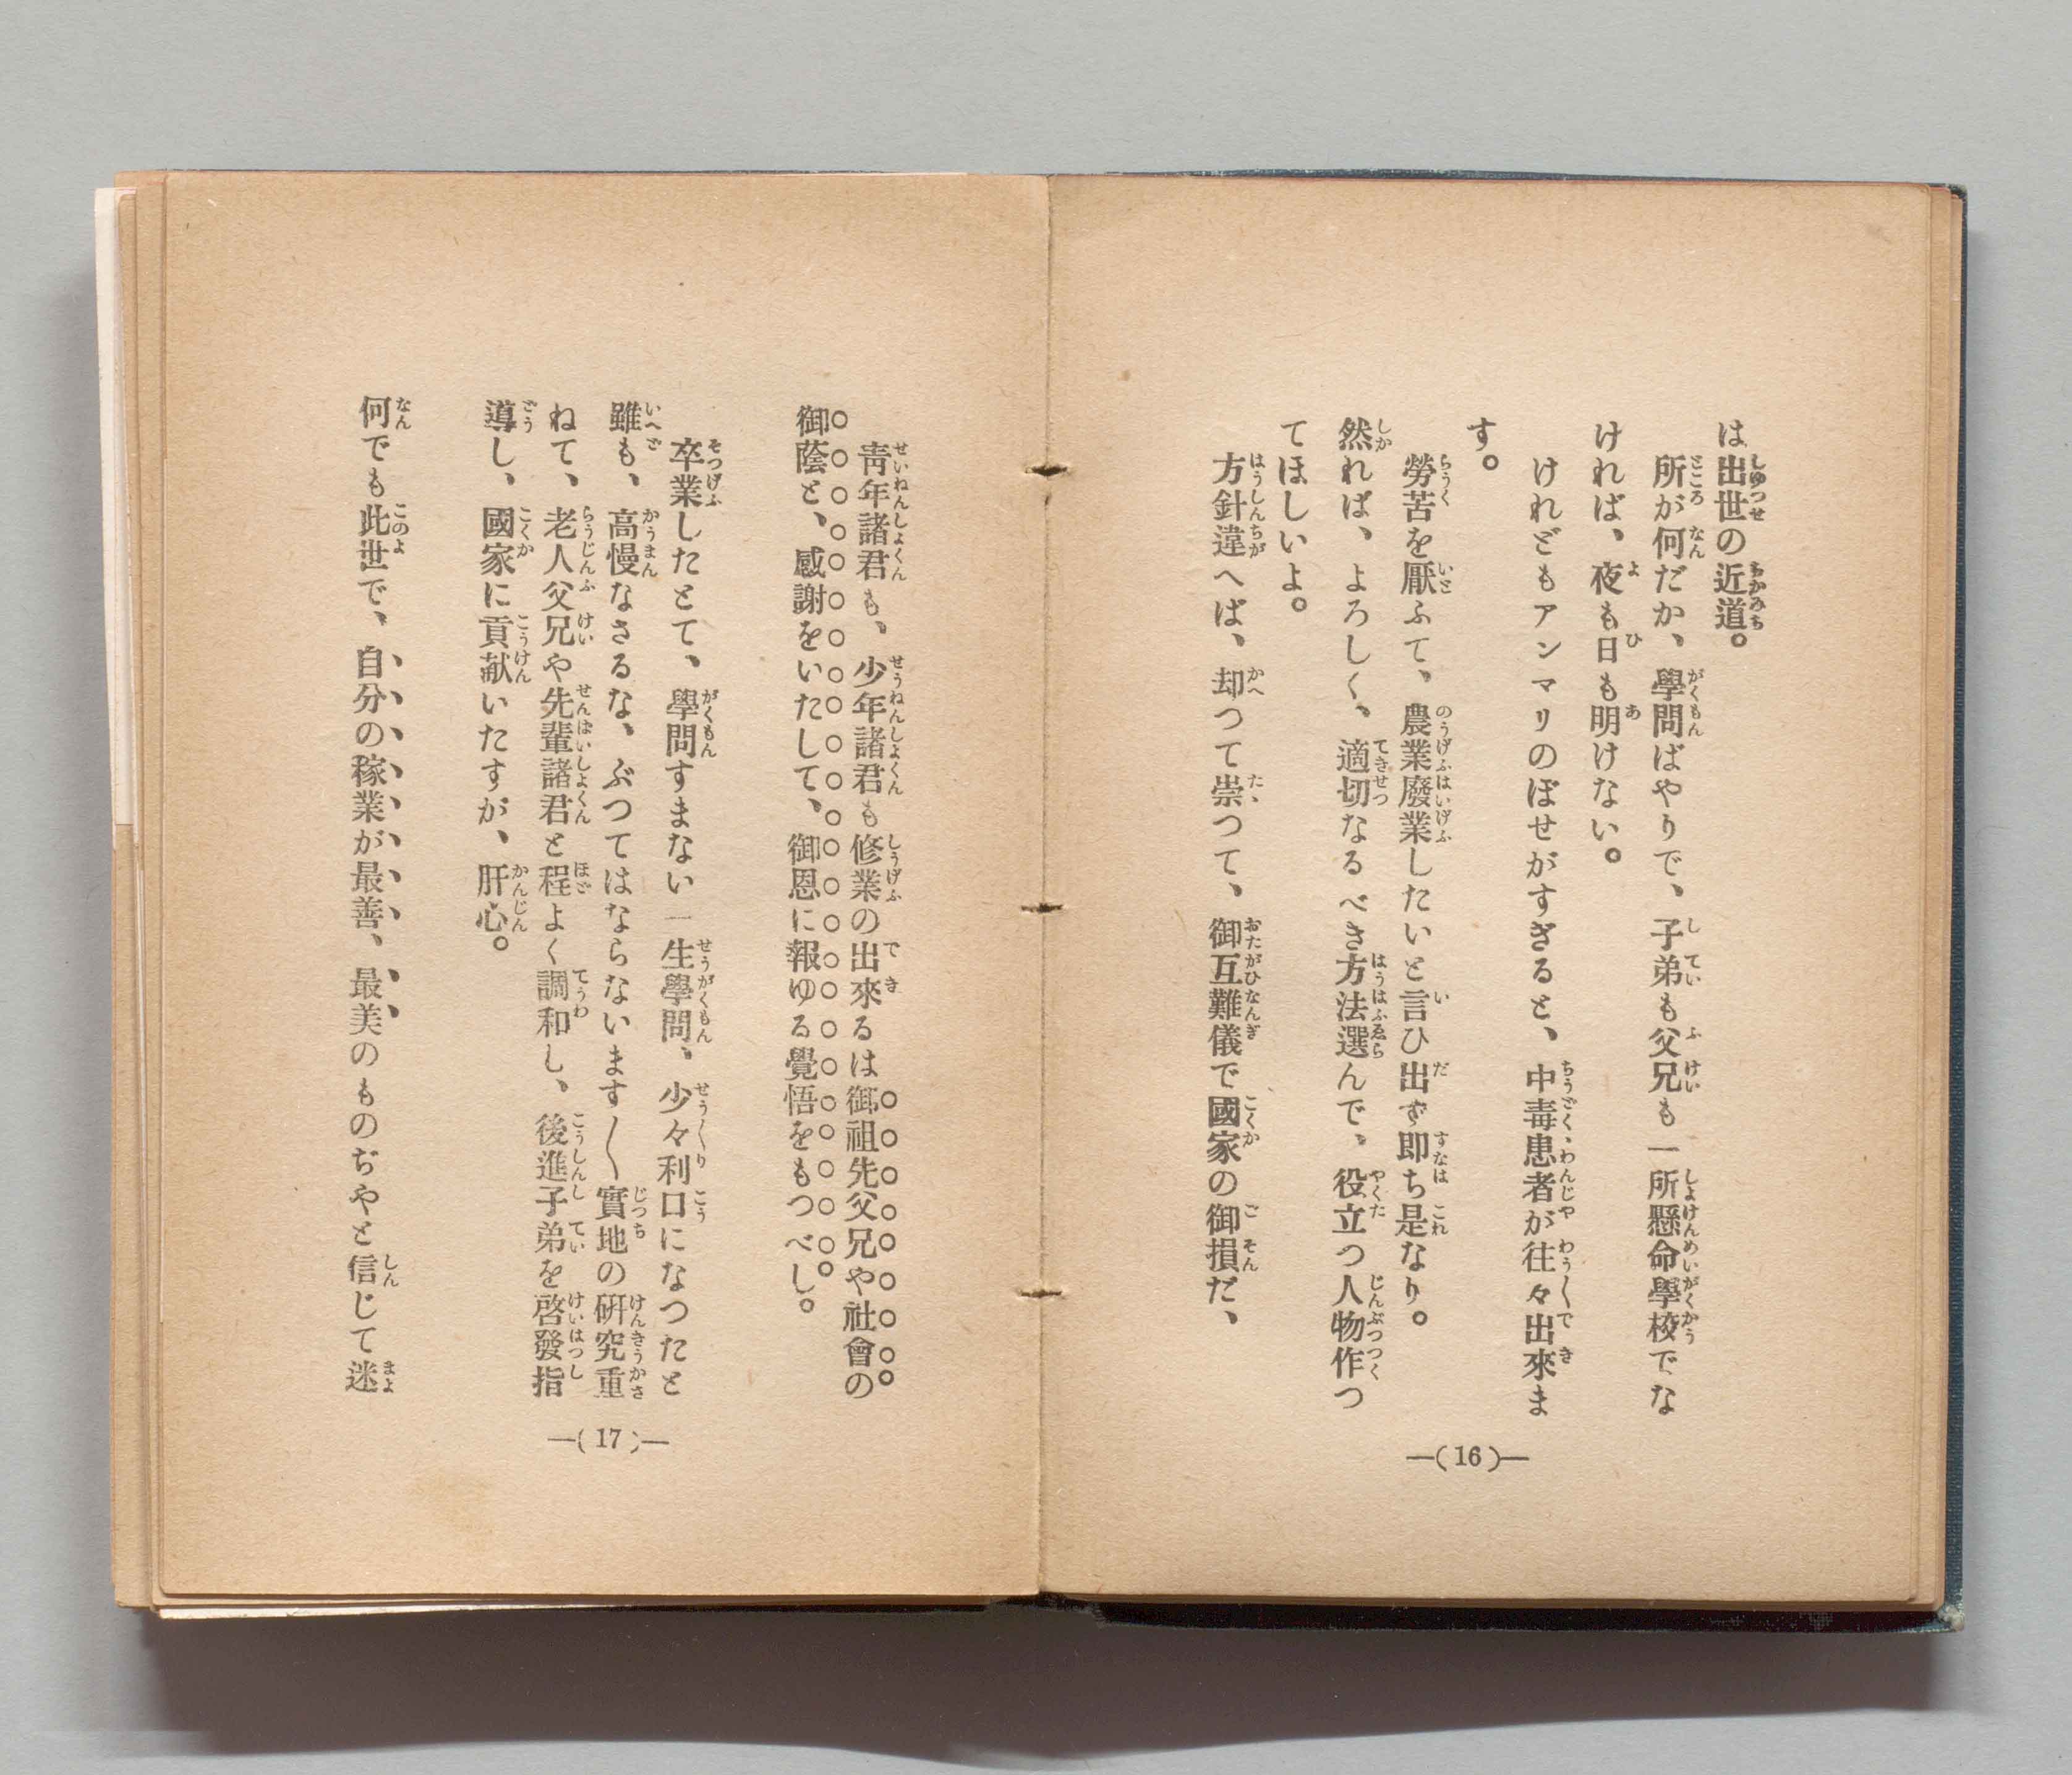 は出世の近道。
所が何だか、學問ばやりで、子弟も父兄も一所懸命學校でな
ければ、夜も日も明けない。
けれどもアンマリのぼせがすぎると、中毒患者が往々出來ま
す。
勞苦を厭ふて、農業廢業したいと言ひ出す即ち是なり。
然れば、よろしく、適切なるべき方法選んで、役立つ人物作つ
てほしいよ。
方針違へば、却つて崇つて、御互難儀で國家の御損だ、
—(16)—
靑年諸君も、少年諸君も修業の出來るは御祖先父兄や社會の
御蔭と、感謝をいたして、御恩に報ゆる覺悟をもつべし。
卒業したとて、學問すまない一生學問、少々利口になつたと
雖も、高慢なさるな、ぶつてはならないます〱實地の硏究重
ねて、老人父兄や先輩諸君と程よく調和し、後進子弟を啓發指
導し、國家に貢献いたすが、肝心。
何でも此世で、自分の稼業が最善、最美のものぢやと信じて迷
—(17)—